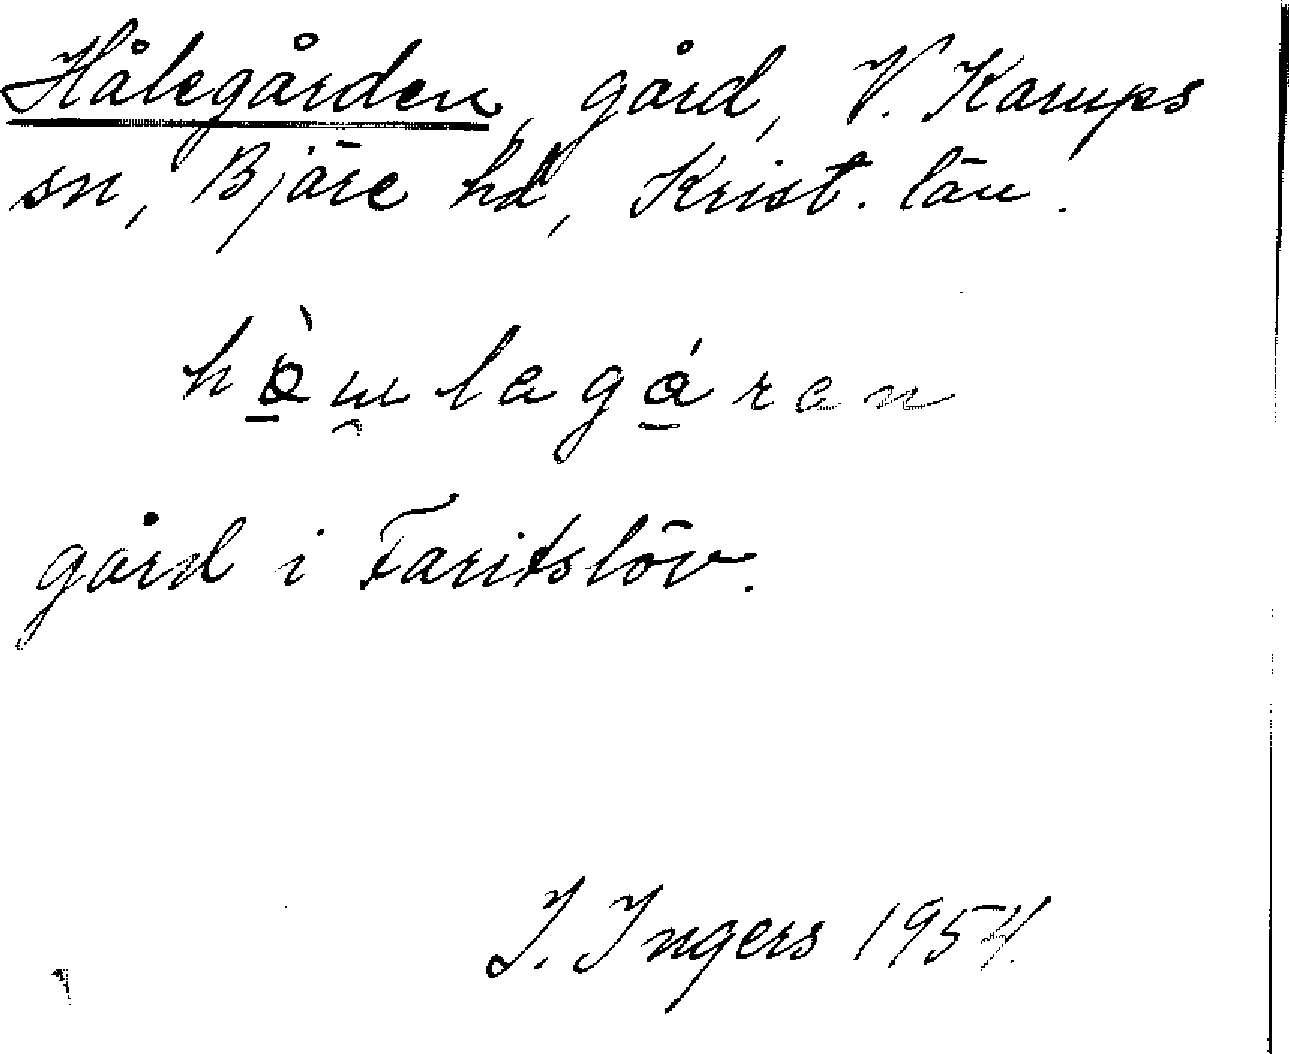 Hålegården, gård, V. Karups
sn, Bjäre hd, Krist. län.
gård i Faritslöv.
I. Ingers 1954.